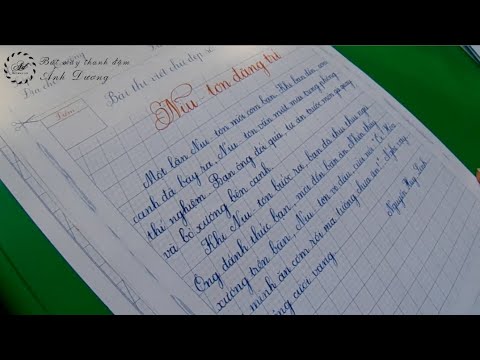 Bút máy thanh đậm
Ánh Dương
Địa chỉ
Bài thi viết chữ đẹp
Điểm
Niu tơn đãng trí
Một lần Niu tơn mời cơm bạn. Khi bàn tiệc
canh đã bày ra, Niu tơn vẫn mải mê trong phòng
thí nghiệm. Bạn ông đói quá, tự ăn trước món gà quay
và bỏ xương bên cạnh.
Khi Niu tơn bước ra, bạn đã thiu thiu ngủ.
Ông đánh thức bạn, mời đến bàn ăn. Nhìn thấy
xương trên bàn, Niu tơn vỗ đầu, cười nói: "
mình ăn cơm rồi mà tưởng chưa ăn".
cười vang.
Nguyễn Huy